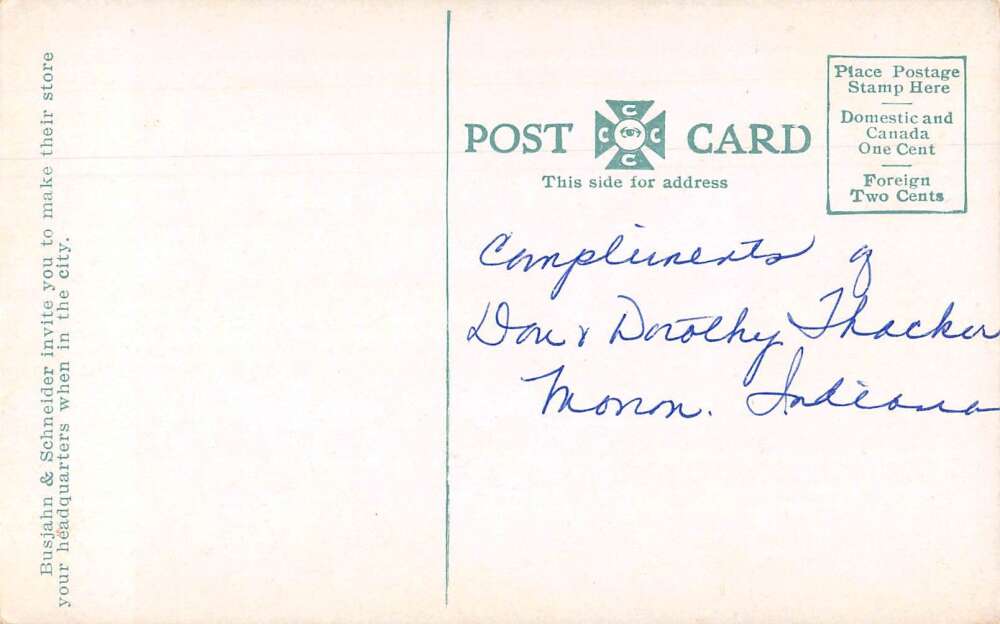 Busjahn & Schneider invite you to make their store
your headquarters when in the city.
POST CARD
C
C C
C
This side for address
Place Postage
Stamp Here
Domestic and
Canada
One Cent
Foreign
Two Cents
Compliments of
Don & Dorothy Thacker
Monon. Indiana